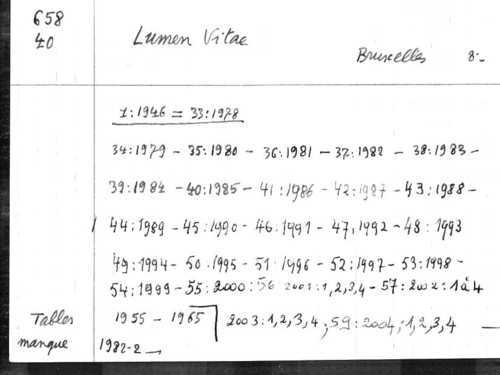 658
40
Lumen Vitae
Bruxelles 8.-
1:1946 = 33:1978
34:1979 - 35:1980 - 36:1981 - 37:1982 - 38:1983 -
39:1984 - 40:1985 - 41:1986 - 42:1987 - 43:1988 -
44:1989 - 45:1990 - 46:1991 - 47,1992 - 48:1993
49:1994 - 50.1995 - 51:1996 - 52:1997 - 53:1998 -
54:1999 - 55:2000:56 2001:1,2,3,4 - 57:2002:1 à 4
Tables 1955 - 1965 2003:1,2,3,4; 59:2004;1,2,3,4 -
manque 1982-2 -